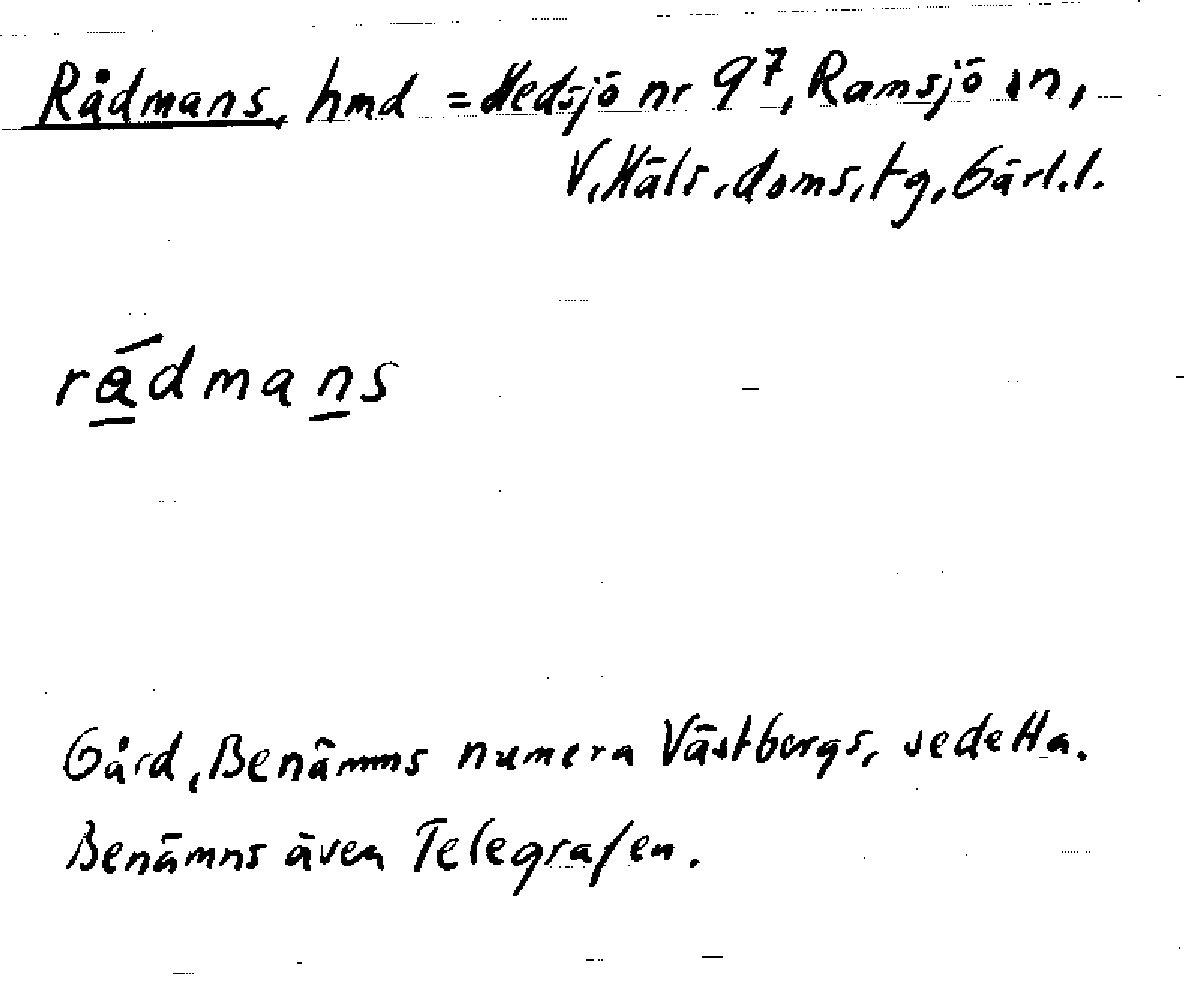 Rådmans, hmd = Hedsjö nr 9⁷, Ramsjö sn,
V. Häls. doms. tg, Gävl. l.
rådmans
Gård. Benämns numera Västbergs, se detta.
Benämns även Telegrafen.